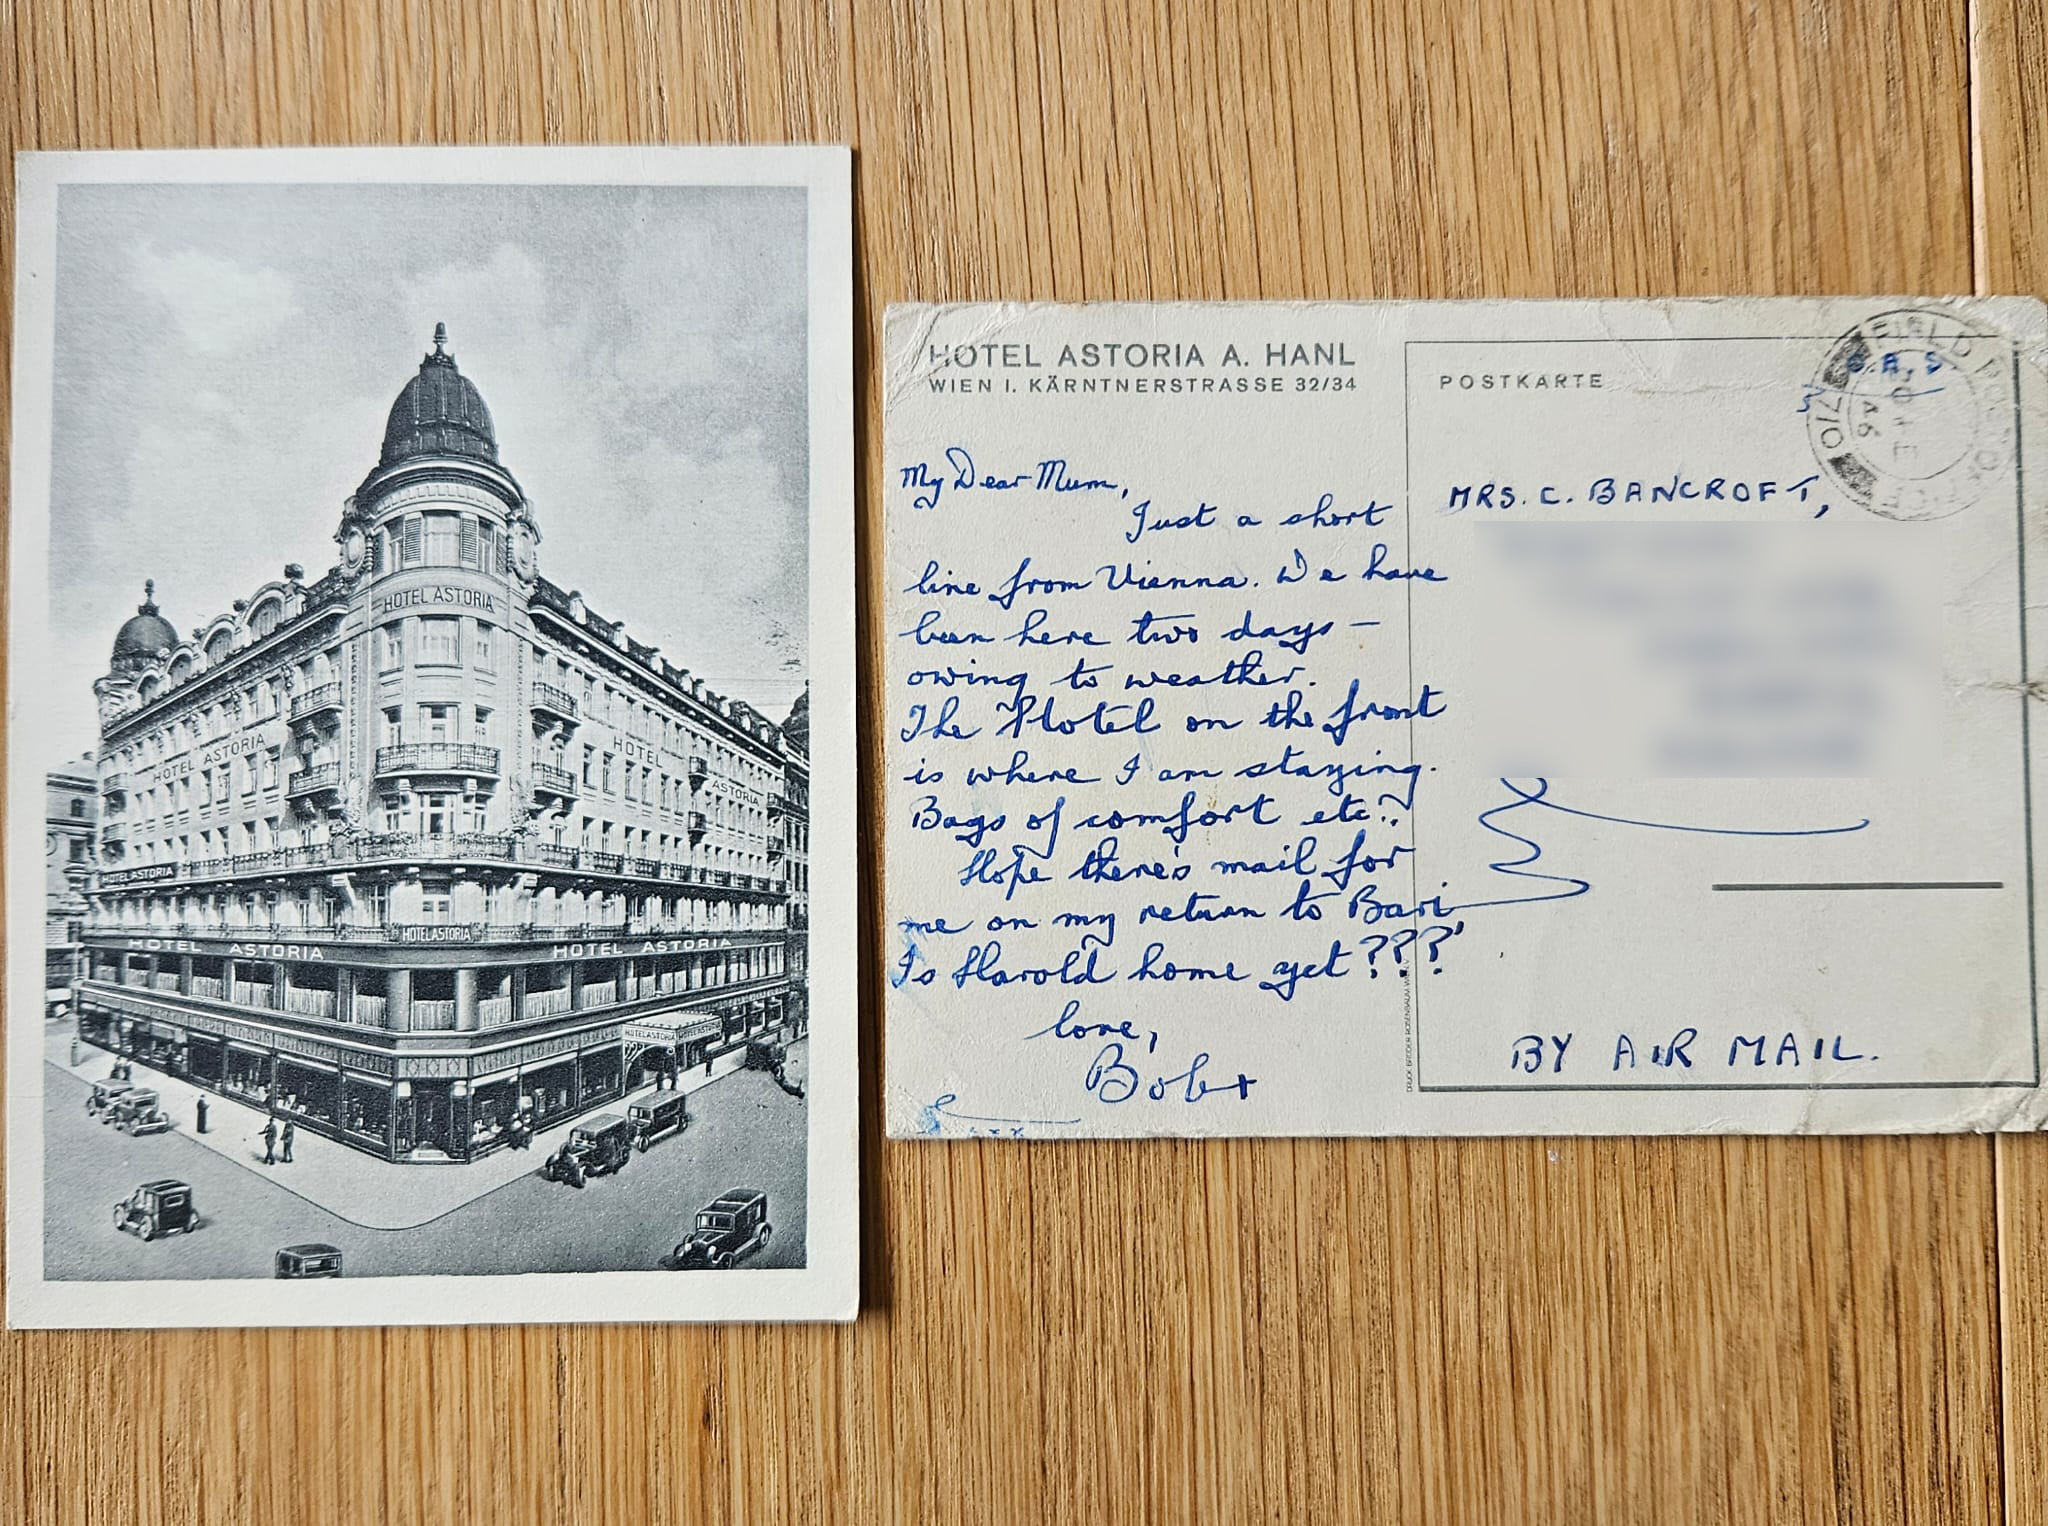 HOTEL ASTORIA
HOTEL ASTORIA
HOTEL ASTORIA
HOTEL ASTORIA
HOTEL ASTORIA
HOTEL ASTORIA
HOTEL ASTORIA
HOTEL ASTORIA
HOTEL ASTORIA
HOTEL ASTORIA A. HANL
WIEN I. KÄRNTNERSTRASSE 32/34
My Dear Mum,
Just a short
line from Vienna. We have
been here two days –
owing to weather.
The Hotel on the front
is where I am staying.
Bags of comfort etc!!
Hope there's mail for
me on my return to Bari,
Is Harold home yet???
love,
Bob x
x x x
POSTKARTE
FIELD POST OFFICE
710
46
MRS. C. BANCROFT,
BY AIR MAIL.
DRUCK BRÜDER ROSENBAUM, WIEN